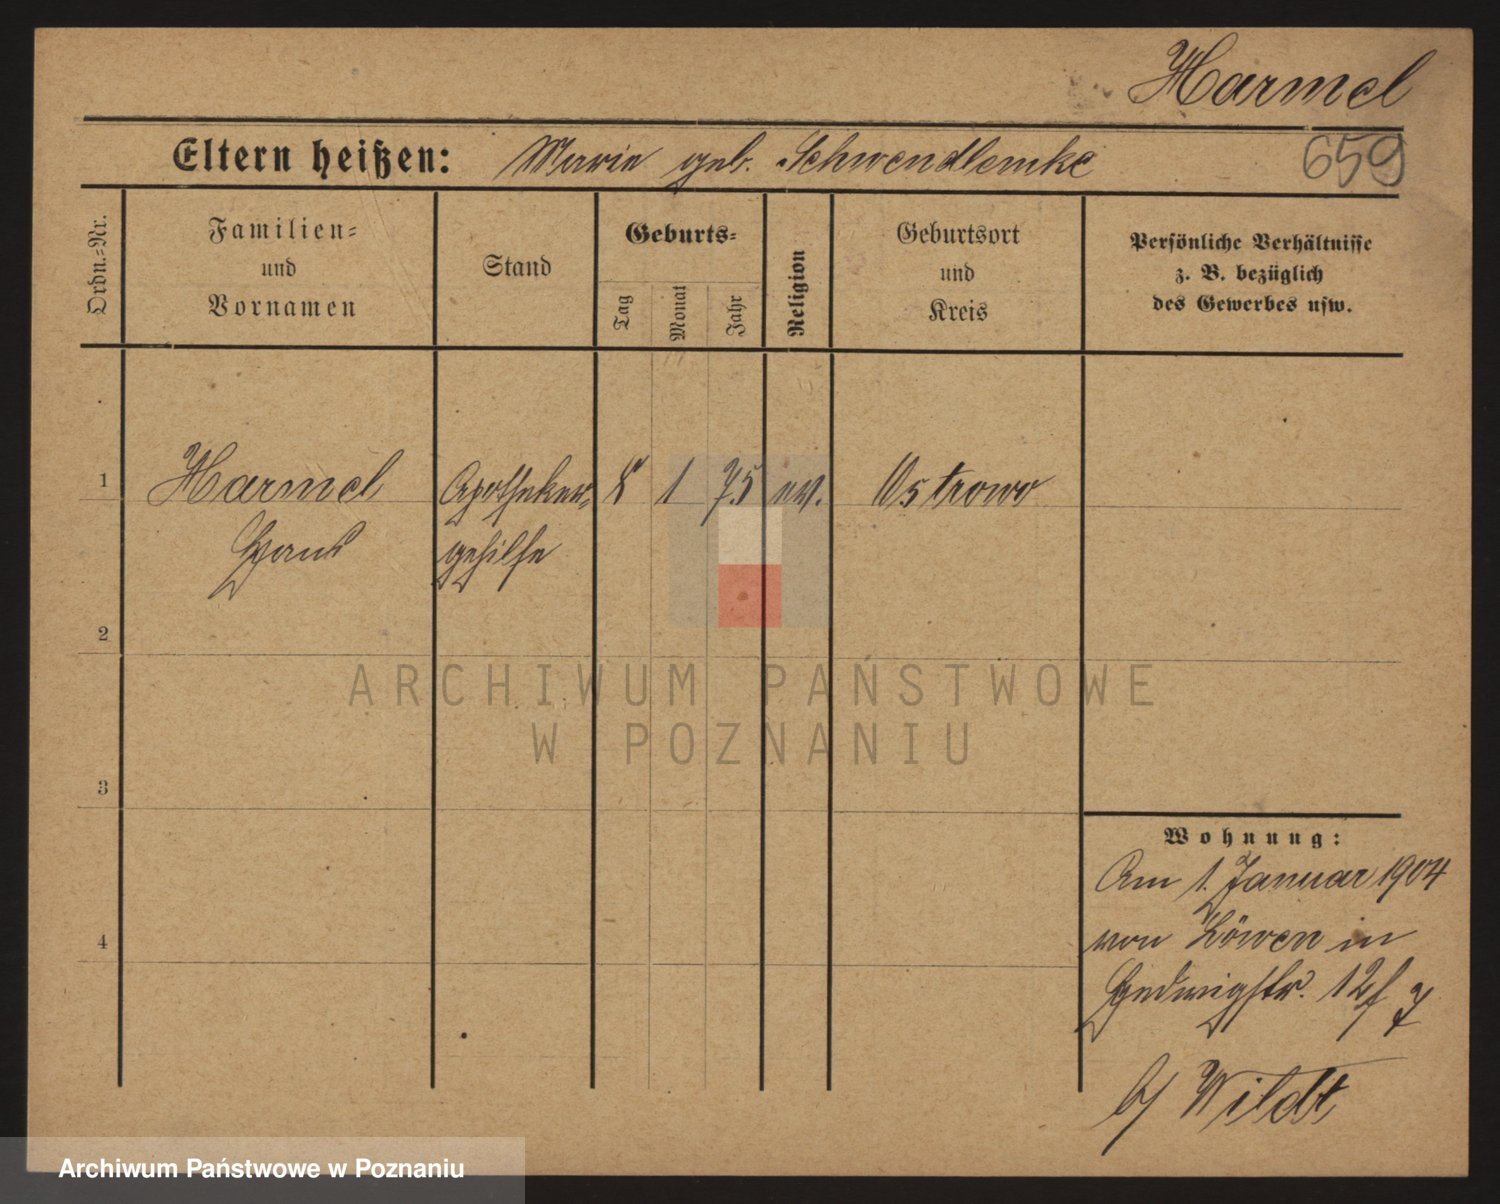 Harmel
Eltern heißen: Marie geb. Schwendlemke
659
Ordn.-Nr.
Familien-
und
Vornamen
Stand
Geburts-
Tag
Monat
Jahr
Religion
Geburtsort
und
Kreis
Persönliche Verhältnisse
z. B. bezüglich
des Gewerbes usw.
1 Harmel Apotheker- 8 1 75 ev. Ostrowo
Hans gehilfe
2
ARCHIWUM PAŃSTWOWE
W POZNANIU
3
Wohnung:
Am 1. Januar 1904
von Löwen in
4
Hedwigstr. 12
b/ Wildt
Archiwum Państwowe w Poznaniu